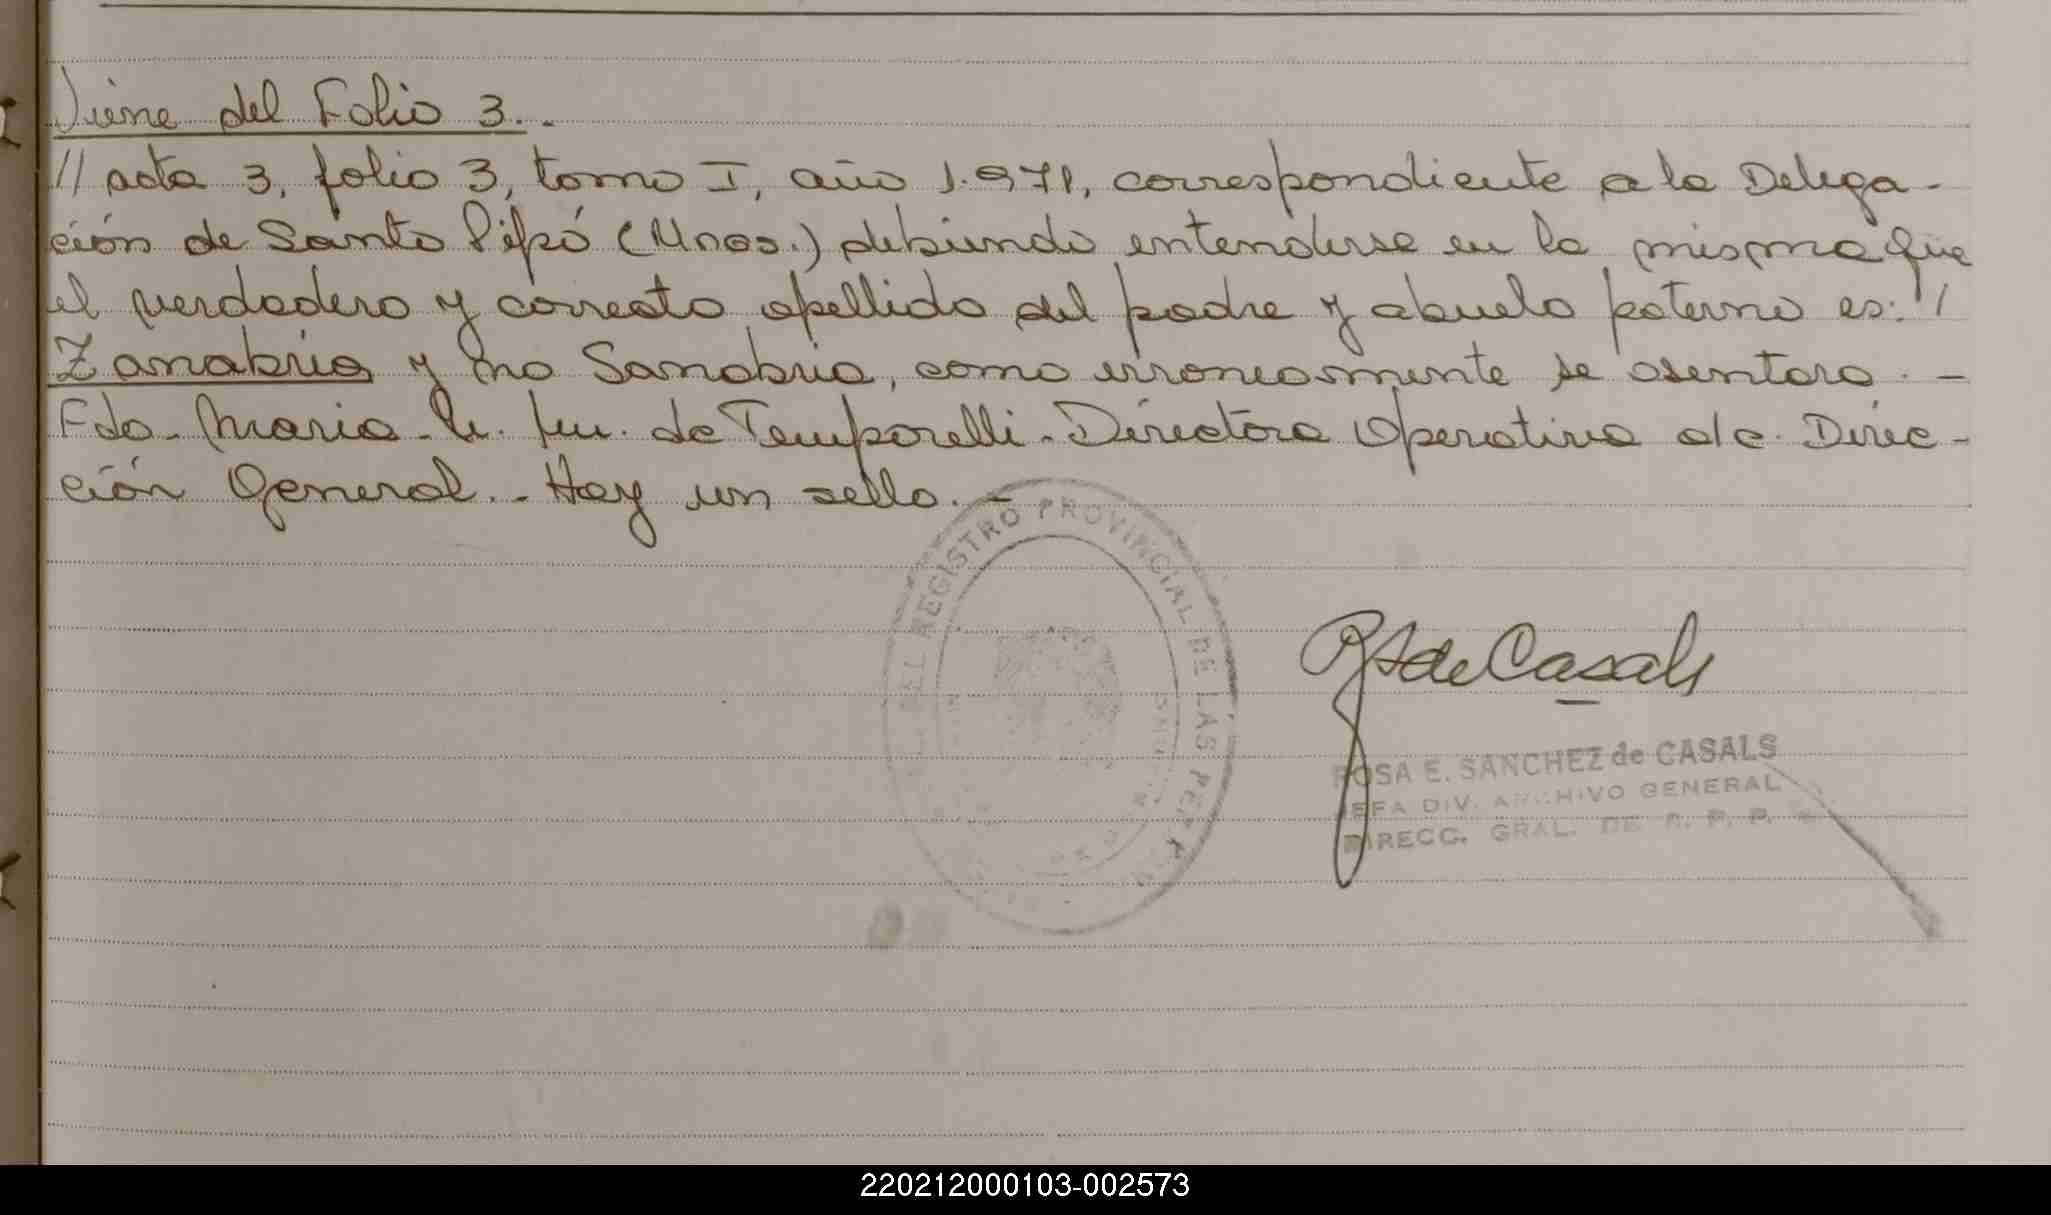 Viene del Folio 3.-
// acta 3, folio 3, tomo I, año 1.971, correspondiente a la Delega-
ción de Santo Pipó (Mnes.) debiendo entenderse en la misma que
el verdadero y correcto apellido del padre y abuelo paterno es: //
Zanabria y no Sanabria, como erroneamente se asentara. -
Fdo. Maria de Temporelli - Directora Operativa a/c. Direc-
ción General. - Hay un sello. -
DEL REGISTRO PROVINCIAL DE LAS PERSONAS
R S de Casals
ROSA E. SANCHEZ de CASALS
JEFA DIV. ARCHIVO GENERAL
DIRECC. GRAL. DE R. P. P.
220212000103-002573